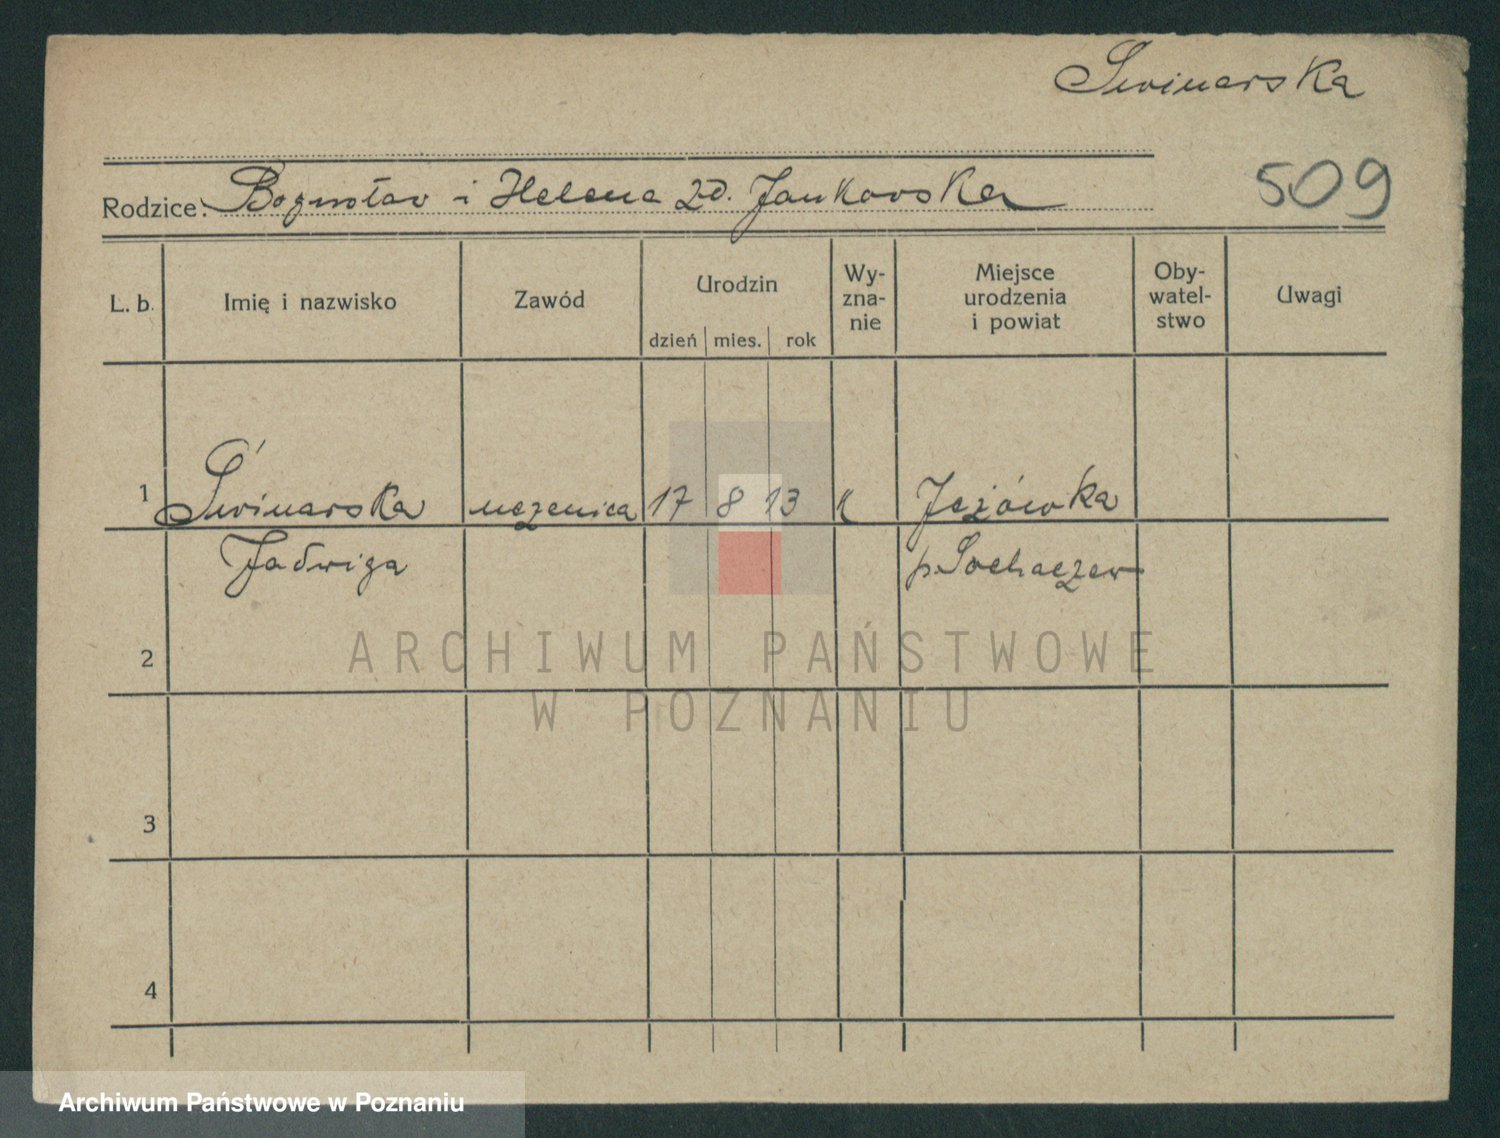 Swinarska
509
Rodzice: Bogusław i Helena zd. Jankowska
L. b. Imię i nazwisko Zawód Urodzin Wy-zna-nie Miejsce urodzenia i powiat Oby-watel-stwo Uwagi
dzień mies. rok
1 Świnarska uczenica 17 8 13 k Jeżówka
Jadwiga p. Sochaczew
2
ARCHIWUM PAŃSTWOWE
W POZNANIU
3
4
Archiwum Państwowe w Poznaniu